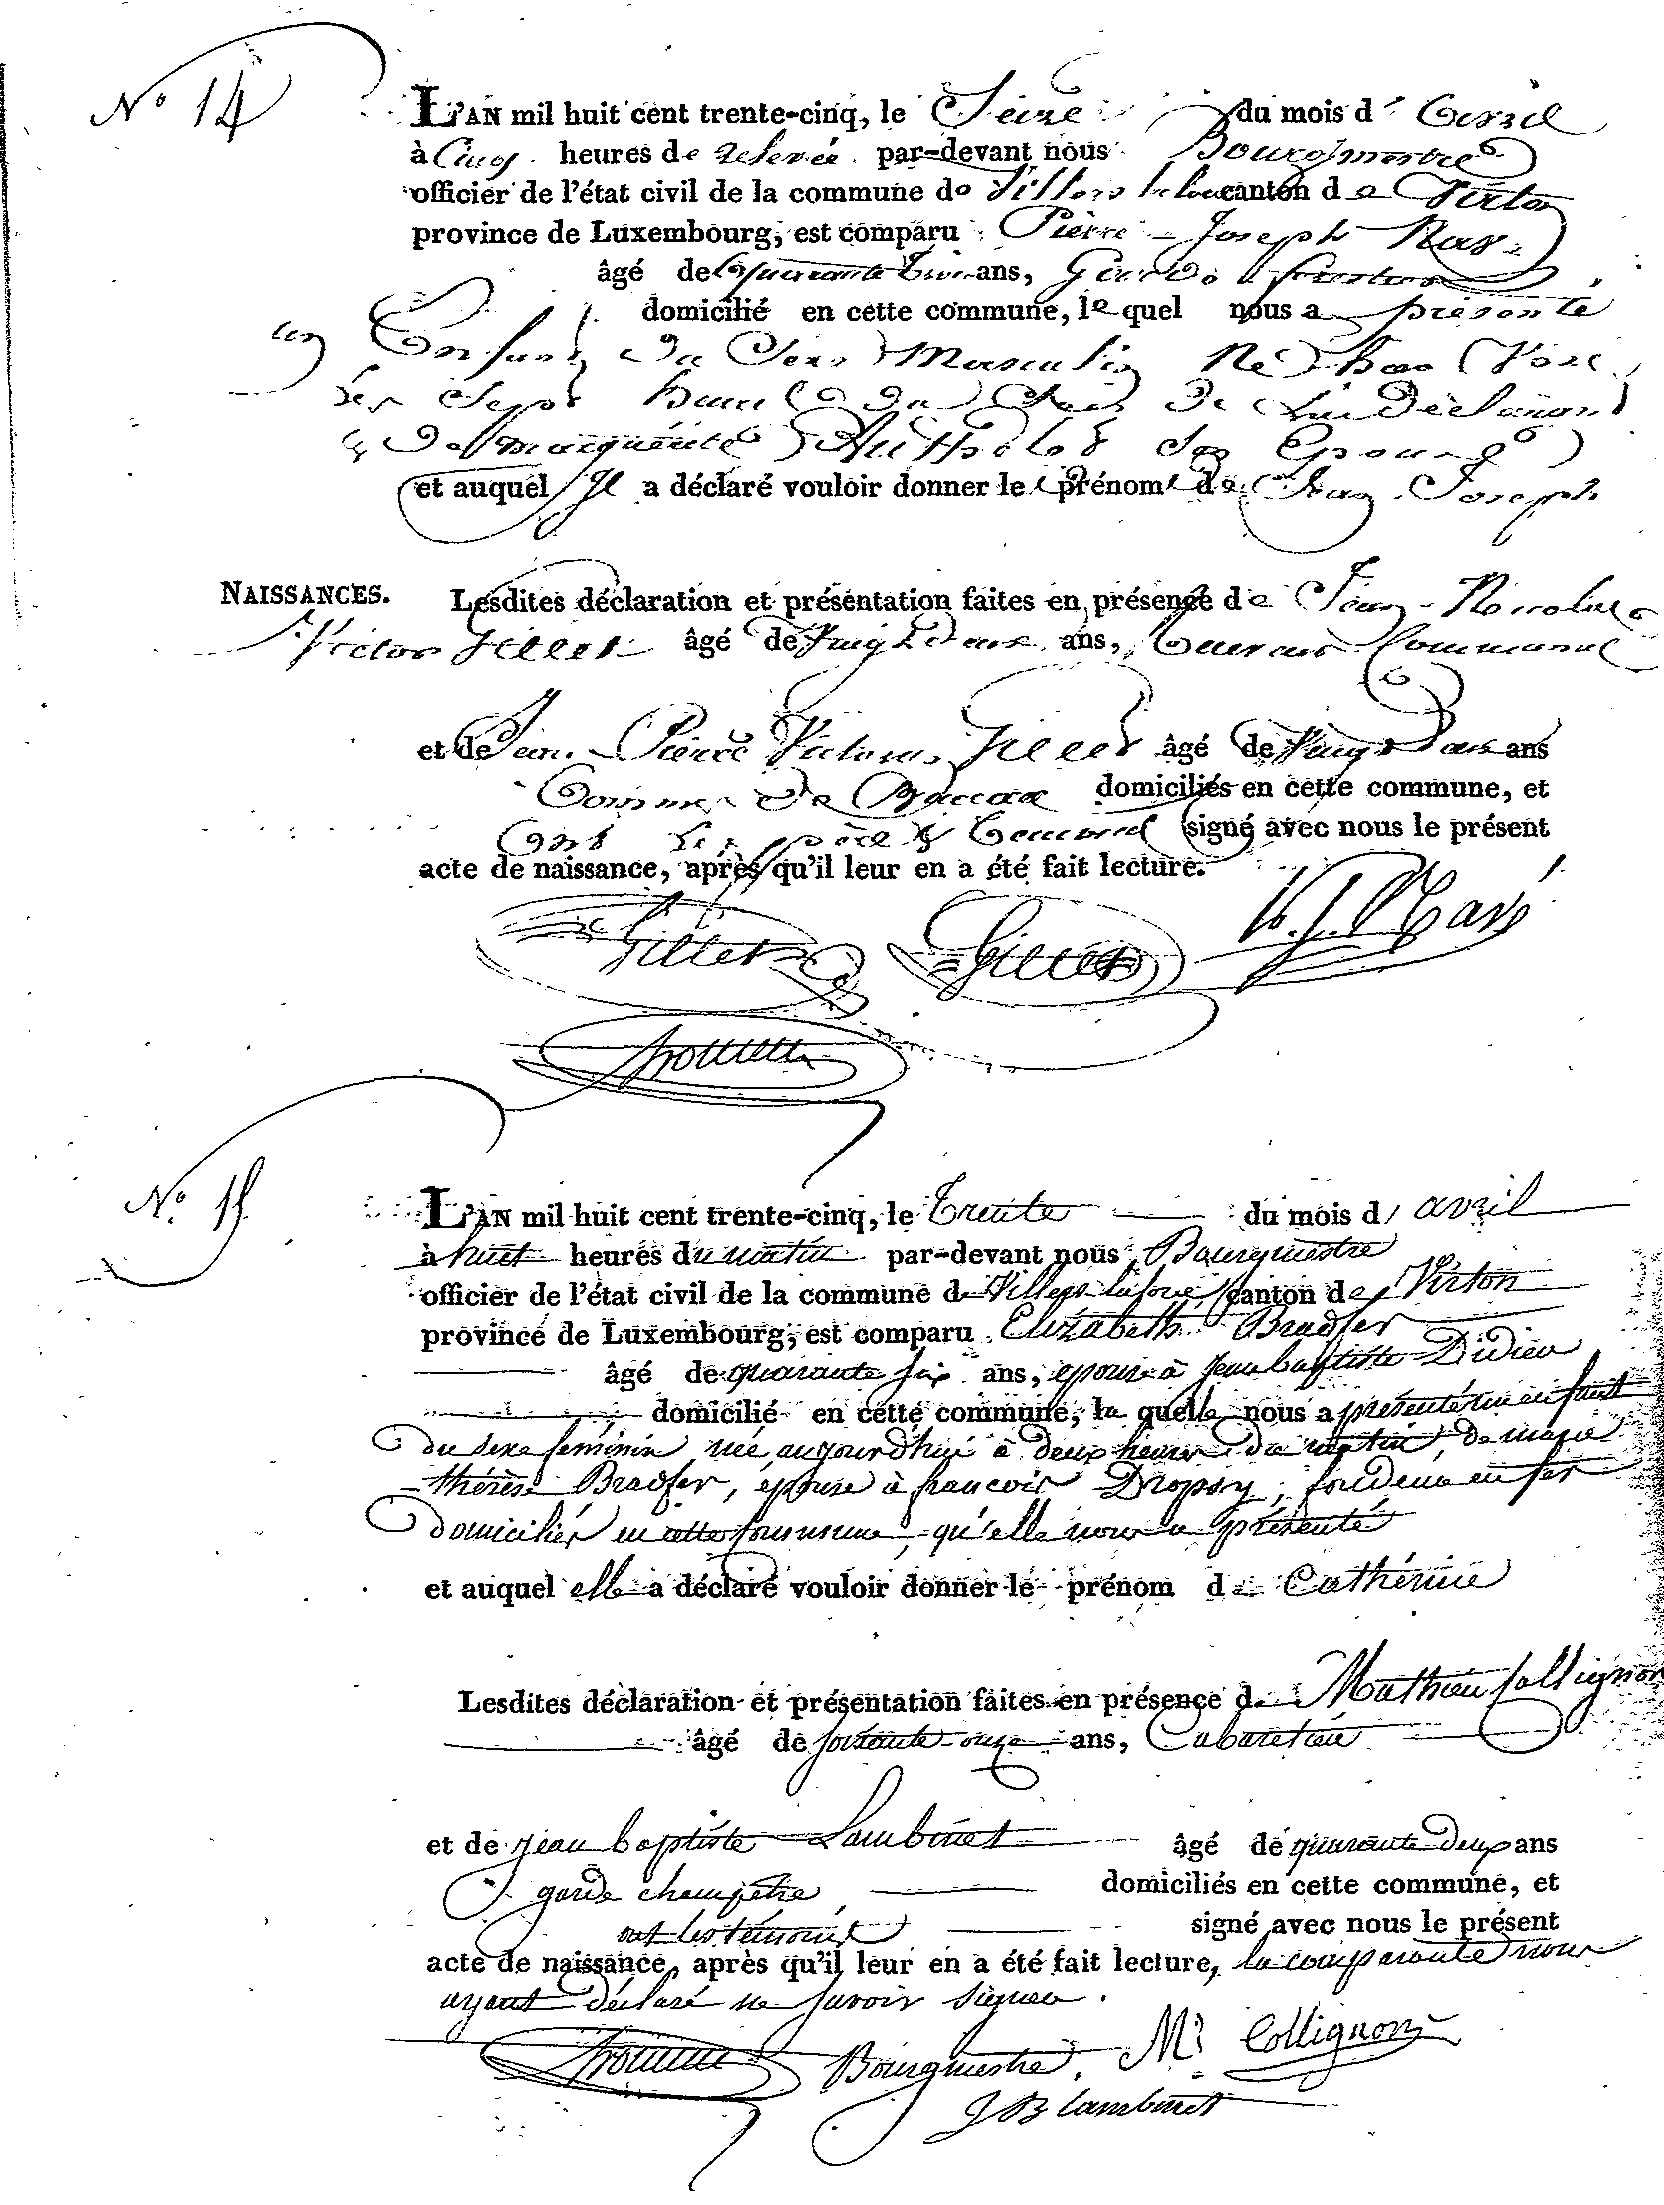 N° 14
L'AN mil huit cent trente-cinq, le Seize du mois d' Avril
à Cinq heures de relevée par-devant nous Bourgmestre
officier de l'état civil de la commune de Villers la loue canton de Virton
province de Luxembourg, est comparu Pierre - Joseph
âgé de quarante trois ans, Garde forestier
domicilié en cette commune, le quel nous a présenté
un Enfant du Sexe Masculin Né
les Sept heures du Soir De Lui Déclarant
& De marguerite son Epouse
et auquel Il a déclaré vouloir donner les prénoms de Jean Joseph
NAISSANCES. Lesdites déclaration et présentation faites en présence de Jean - Nicolas
Victor Gillet âgé de Vingt Deux ans, Receveur Communal
et de Jean - Pierre Victor Gillet âgé de Vingt Deux ans
Commis De Bureau domiciliés en cette commune, et
Ont Les père & témoins signé avec nous le présent
acte de naissance, après qu'il leur en a été fait lecture.
Gillet Gillet
N° 15
L'AN mil huit cent trente-cinq, le Trente du mois d' avril
à huit heures du matin par-devant nous Bourgmestre
officier de l'état civil de la commune de Villers laloue canton de Virton
province de Luxembourg, est comparu Elizabeth Bradfer
âgé de quarante six ans, epouse à Jean baptiste Didier
domicilié en cette commune, la quelle nous a présenté un enfant
du sexe féminin, née aujourd'hui à deux heures du matin, de marie
thérèse Bradfer, épouse à francois Dropsy, fondeur en fer
domiciliés en cette commune, qu'elle nous a présenté
et auquel elle a déclaré vouloir donner le prénom de Cathérine
Lesdites déclaration et présentation faites en présence de Mathieu Collignon
âgé de soixante onze ans, Cabaretier
et de jean baptiste Lambinet âgé de quarante deux ans
garde champêtre, domiciliés en cette commune, et
ont les témoins signé avec nous le présent
acte de naissance, après qu'il leur en a été fait lecture, la comparante nous
ayant déclaré ne savoir signer.
Bourgmestre. M. Collignon
J B Lambinet